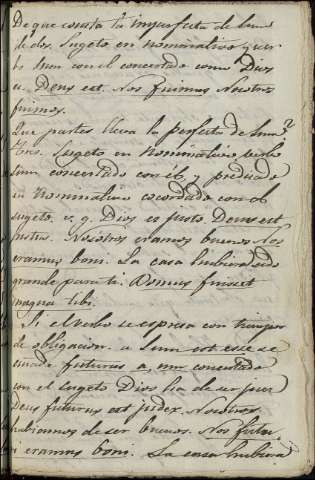 De que consta la imperfecta de Sum
de dos. Sugeto en nominativo y ver
bo Sum con el concertado como Dios
es. Deus est. Nos fuimos Nosotros
fuimos.
Que partes lleva la perfecta de Sum?
Tres. Sugeto en Nominativo verbo
Sum concertado con el, y predicado
en Nominativo concordado con el
sugeto. v. g. Dios es justo. Deus est
justus. Nosotros eramos buenos. Nos
eramus boni. La casa hubiera sido
grande para ti. Domus fuisset
magna tibi.
Si el verbo se espresa con tiempo
de obligacion. a Sum est esse se
añade futurus a, um concertado
con el sugeto Dios ha de ser juez
Deus futurus est judex. Nosotros
habiamos de ser buenos. Nos futu
ri eramus boni. La casa hubiera